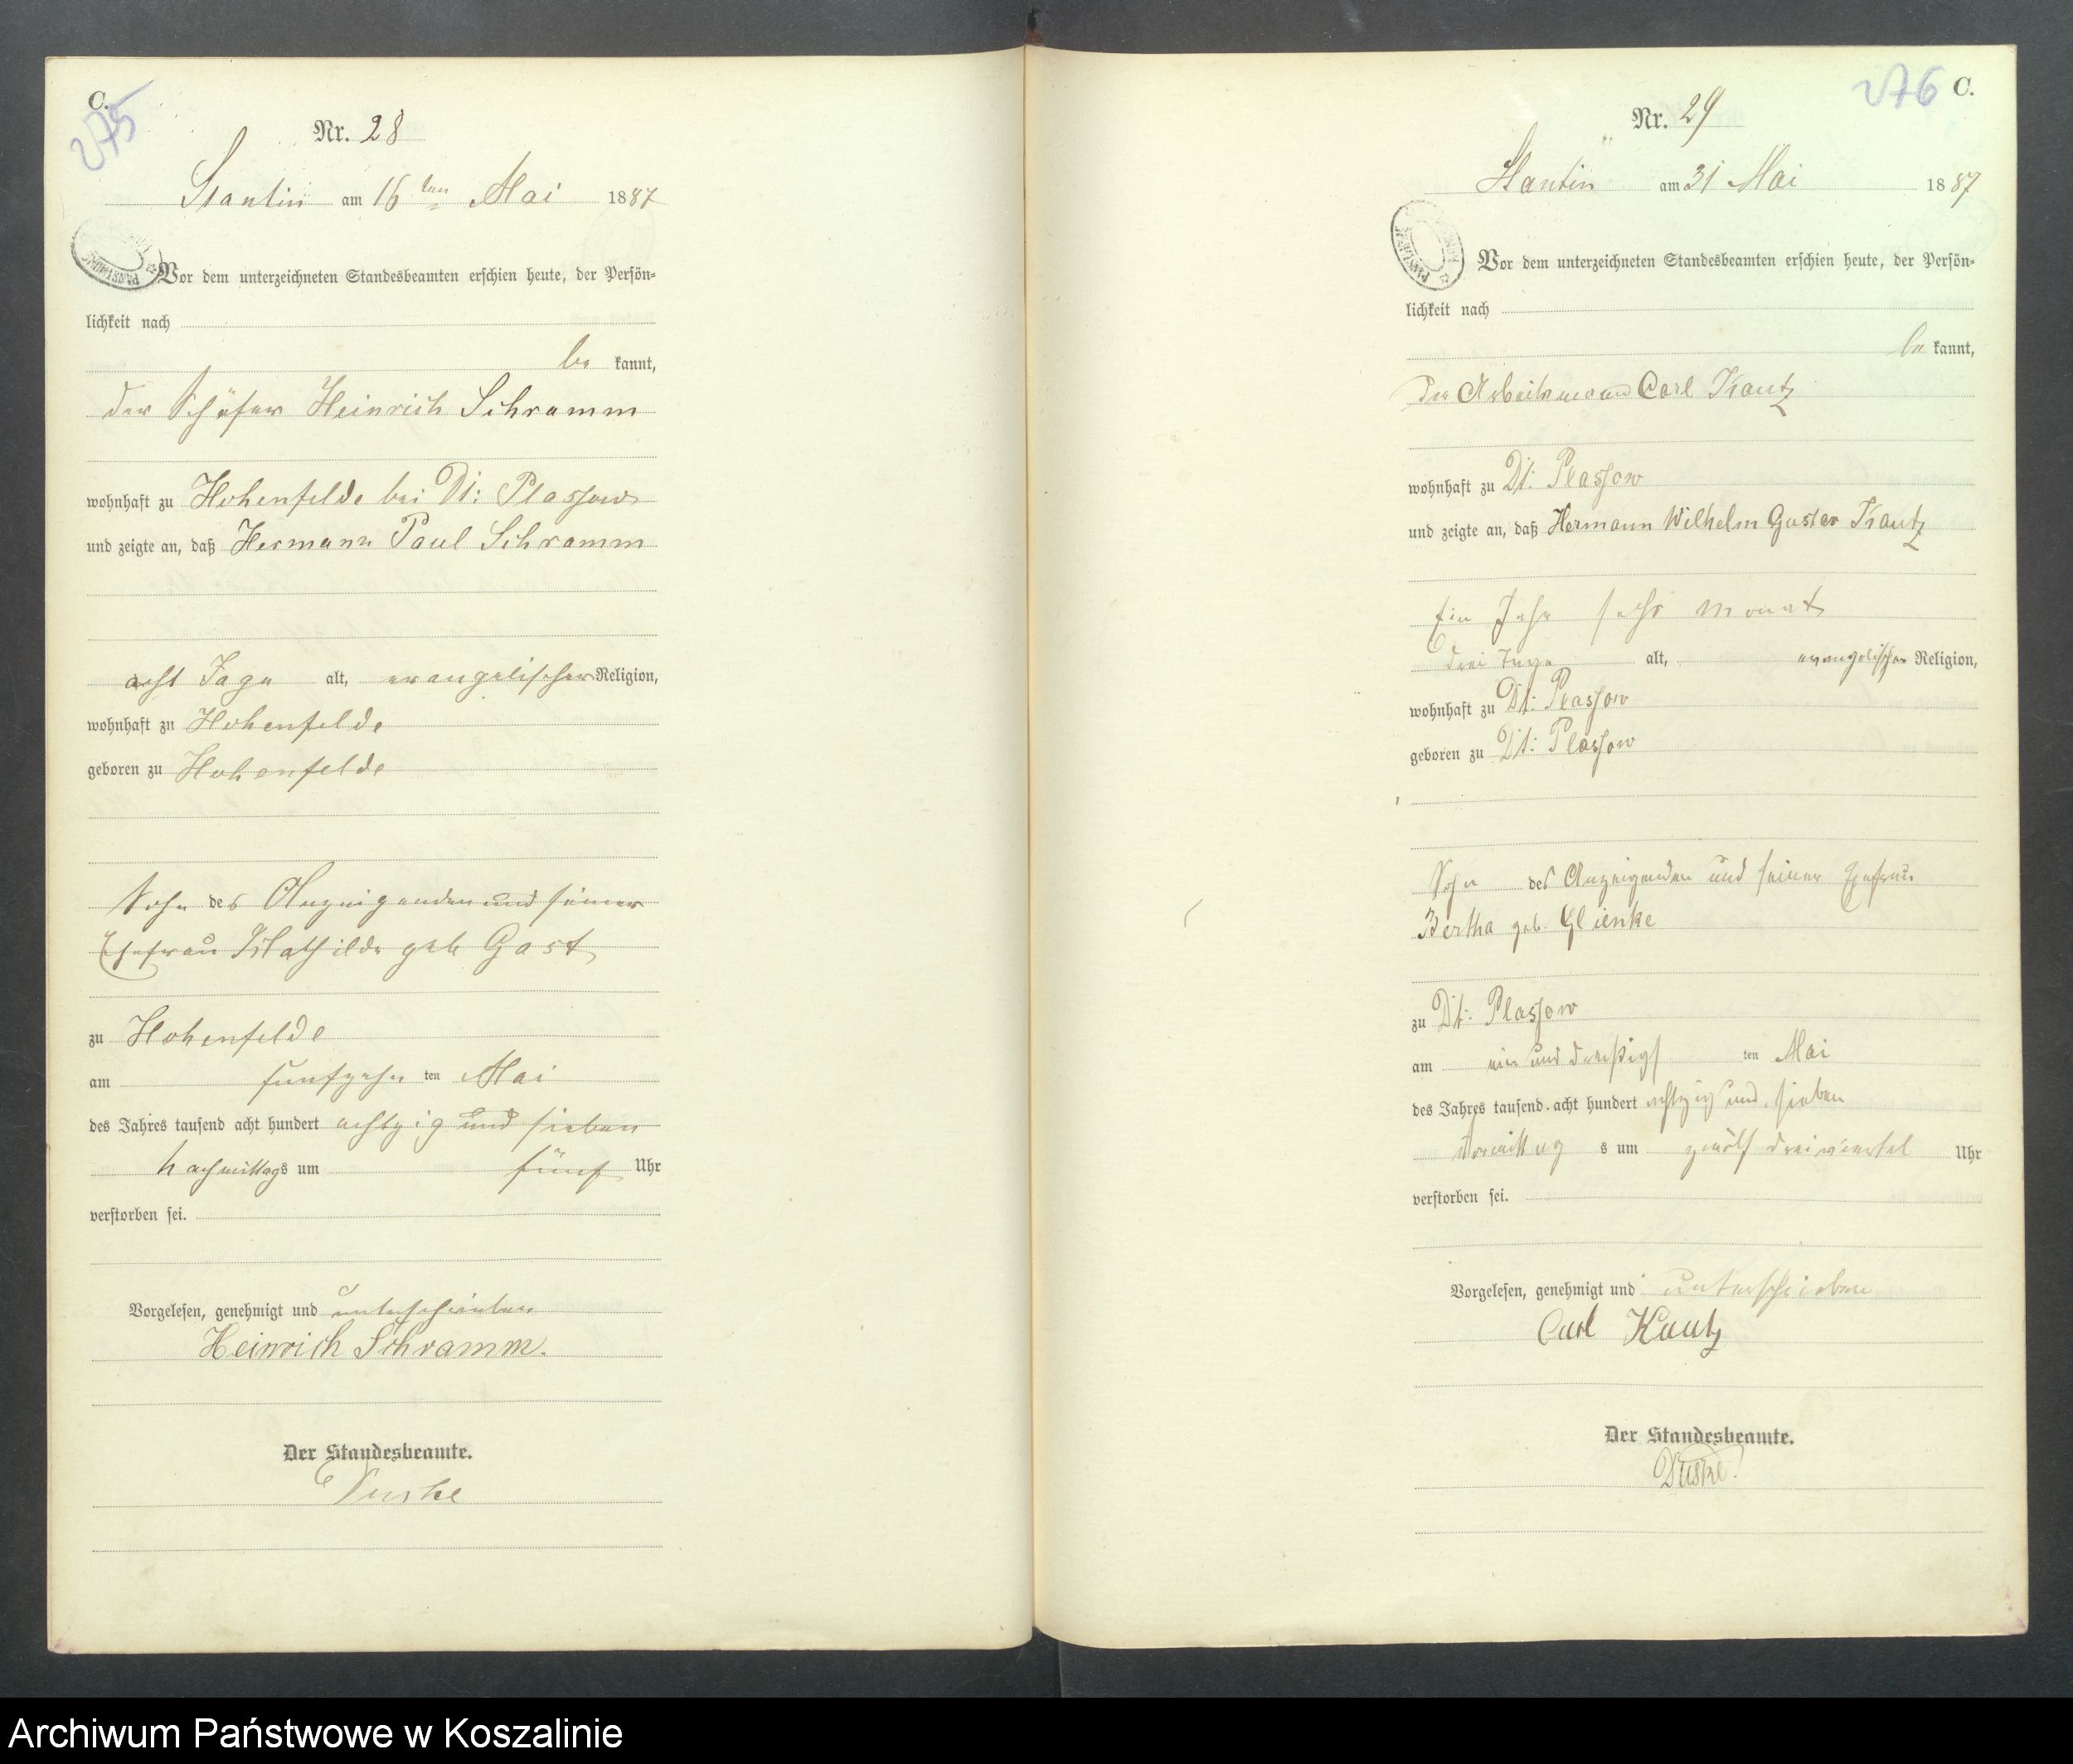 C.
275
Nr. 28
Stantin am 16ten Mai 1887
Vor dem unterzeichneten Standesbeamten erschien heute, der Persön-
lichkeit nach
be kannt,
der Schäfer Heinrich Schramm
wohnhaft zu Hohenfelde bei Dt: Plassow
und zeigte an, daß Hermann Paul Schramm
acht Tage alt, evangelischer Religion,
wohnhaft zu Hohenfelde
geboren zu Hohenfelde
Sohn des Anzeigenden und seiner
Ehefrau Mathilde geb Gast
zu Hohenfelde
am funfzehn ten Mai
des Jahres tausend acht hundert achtzig und sieben
nachmittags um fünf Uhr
verstorben sei.
Vorgelesen, genehmigt und unterschrieben
Heinrich Schramm.
Der Standesbeamte.
276 C.
Nr. 29
Stantin am 31 Mai 1887
Vor dem unterzeichneten Standesbeamten erschien heute, der Persön-
lichkeit nach
be kannt,
der Arbeitsmann Carl Kautz
wohnhaft zu Dt: Plassow
und zeigte an, daß Hermann Wilhelm Gustav Kautz
Ein Jahr sechs Monat
drei Tage alt, evangelischer Religion,
wohnhaft zu Dt: Plassow
geboren zu Dt: Plassow
Sohn des Anzeigenden und seiner Ehefrau
Bertha geb. Glienke
zu Dt: Plassow
am ein und dreißigs ten Mai
des Jahres tausend acht hundert achtzig und sieben
Vormittag s um zwölf dreiviertel Uhr
verstorben sei.
Vorgelesen, genehmigt und unterschrieben
Carl Kautz
Der Standesbeamte.
Archiwum Państwowe w Koszalinie